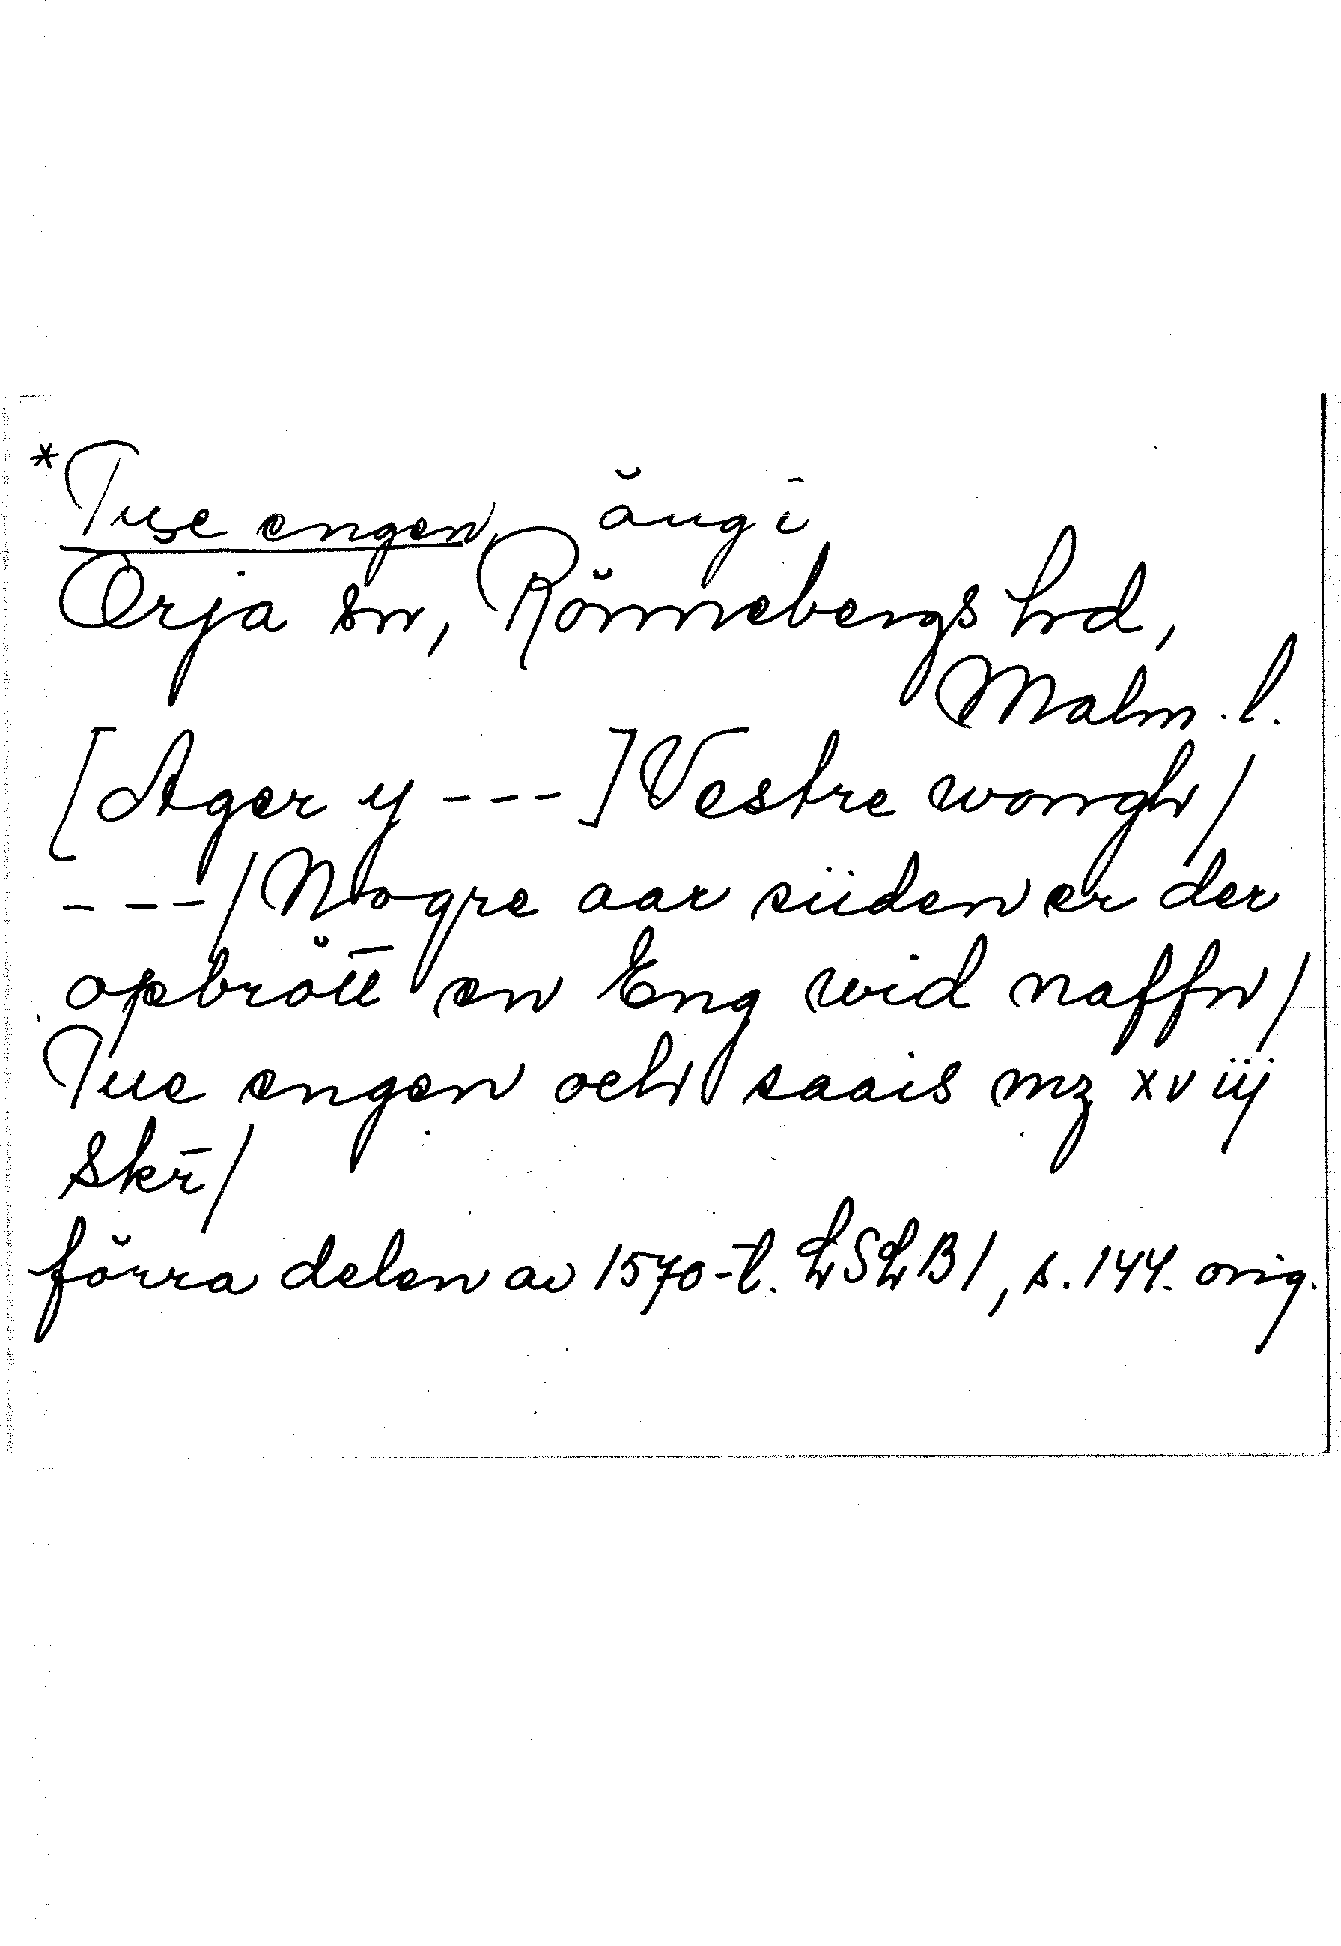 *Tuse engen, äng i
Örja sn, Rönnebergs hrd,
Malm. l.
[Ager y ---] Vestre wongh/
---/ Nogre aar siiden er der
opbrött en Eng wid naffn/
Tue engen och saais mz xviij
skr̄/
förra delen av 1570-t. LSLB 1, s. 144. orig.